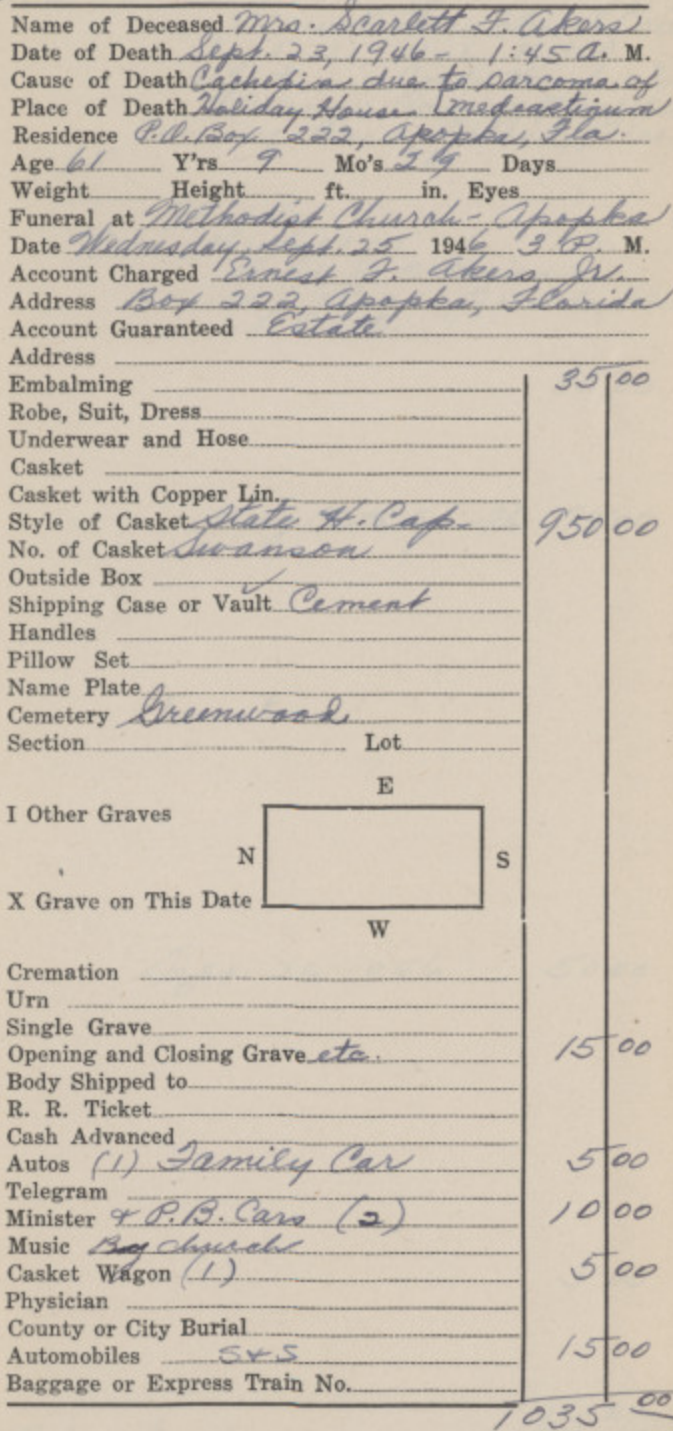 Name of Deceased Mrs. Scarlett F. Akers
Date of Death Sept. 23, 1946 - 1:45 A. M.
Cause of Death Cachexia due to sarcoma of
Place of Death Holiday House [mediastinum
Residence P.O. Box 222, Apopka, Fla.
Age 61 Y'rs 9 Mo's 29 Days
Weight Height ft. in. Eyes
Funeral at Methodist Church - Apopka
Date Wednesday, Sept. 25 1946 3 P. M.
Account Charged Ernest F. Akers Jr.
Address Box 222, Apopka, Florida
Account Guaranteed Estate
Address
Embalming 35 00
Robe, Suit, Dress
Underwear and Hose
Casket
Casket with Copper Lin.
Style of Casket State H. Cap- 950 00
No. of Casket Swanson
Outside Box
Shipping Case or Vault Cement
Handles
Pillow Set
Name Plate
Cemetery Greenwood
Section Lot
E
I Other Graves
N S
X Grave on This Date
W
Cremation
Urn
Single Grave
Opening and Closing Grave etc. 15 00
Body Shipped to
R. R. Ticket
Cash Advanced
Autos (1) Family Car 5 00
Telegram
Minister & P.B. Cars (2) 10 00
Music By church
Casket Wagon (1) 5 00
Physician
County or City Burial
Automobiles S & S 15 00
Baggage or Express Train No.
1035 00